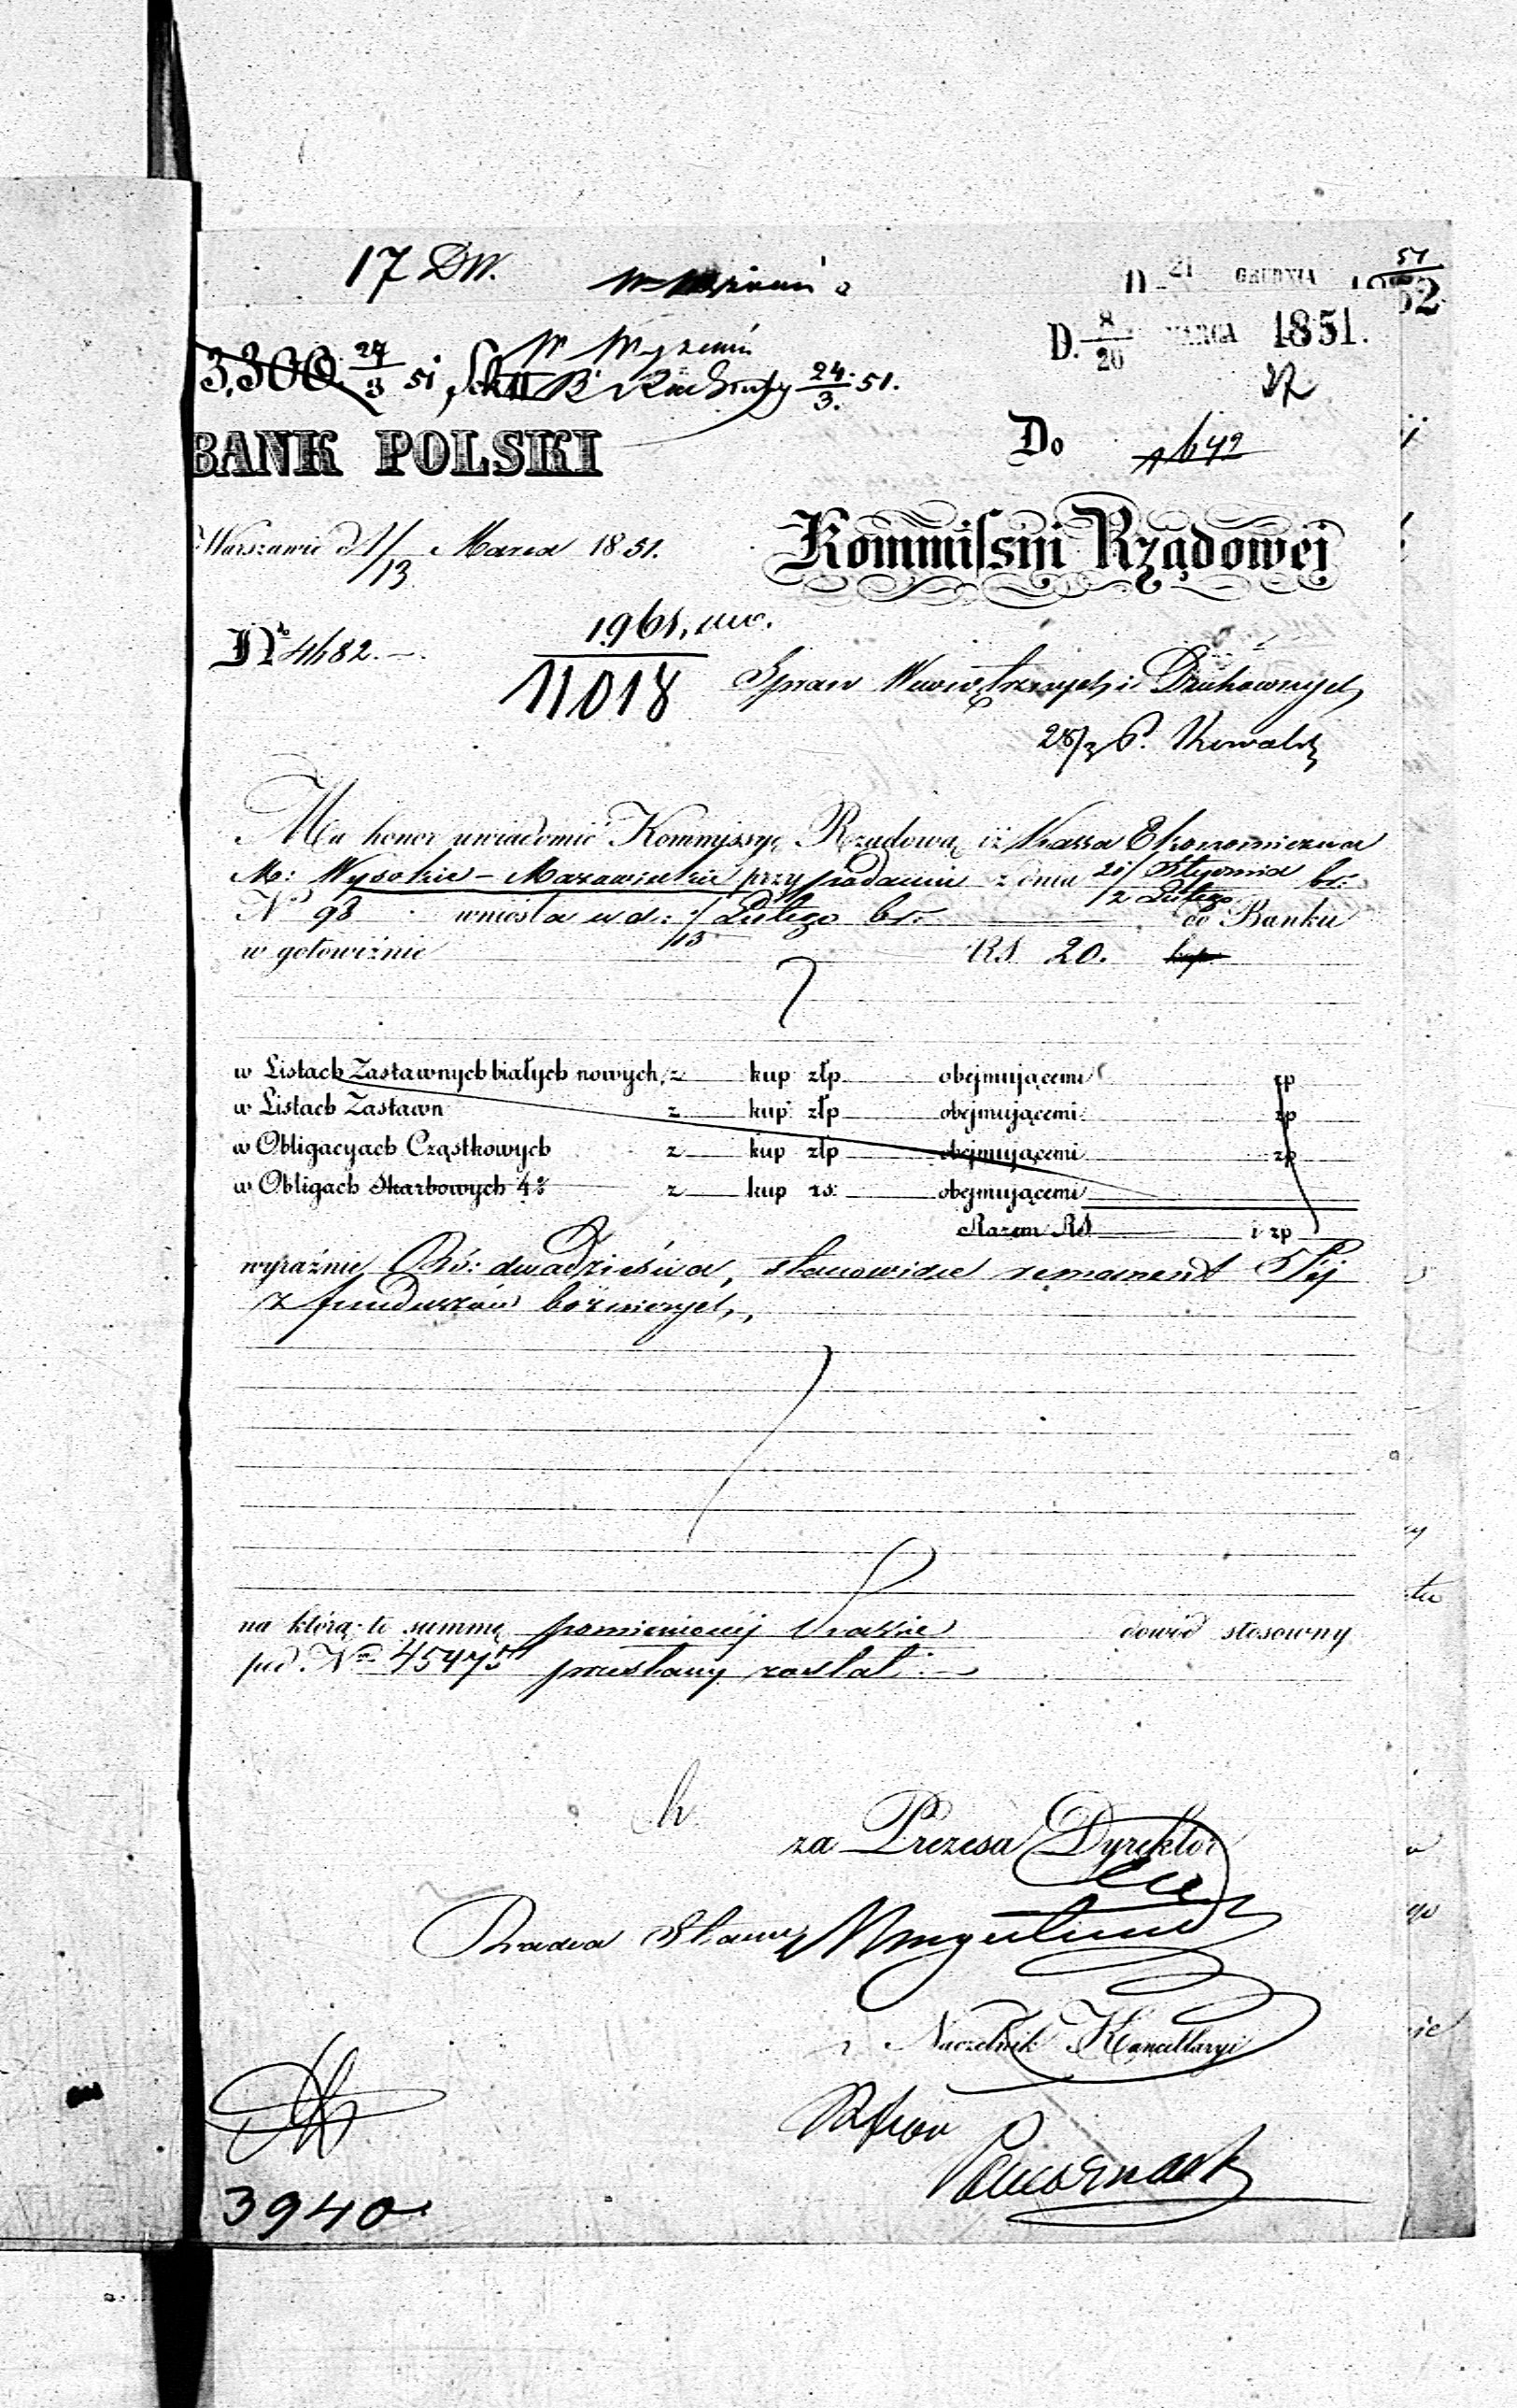 17 DW.
D 21 GRUDNIA
51
D. 8/20 MARCA 1851.
3,300. 51 24/3. 51.
BANK POLSKI
Do
1642
w Warszawie d 1/13 Marca 1851.
Kommissyi Rządowej
No 4682.
1961,
11018
Spraw Wewnętrznych i Duchownych
28/3 P. Kowalski
Ma honor uwiadomić Kommissyę Rządową iż Kassa Ekonomiczna
Mo: Wysokie-Mazowieckie przy podaniu z dnia 21/ Stycznia / 2 Lutego br:
No 98 wniosła w d: 1/13 Lutego br: do Banku
w gotowiźnie RS 20. kop
w Listach Zastawnych białych nowych, z kup złp obejmującemi zp
w Listach Zastawn z kup złp obejmującemi zp
w Obligacyach Cząstkowych z kup złp obejmującemi zp
w Obligach Skarbowych 4% z kup rs: obejmującemi
Razem RS i zp
wyraźnie Rs: dwadzieścia, stanowiące remanent
z funduszów bóżniczych,
na którą to summę pomienionej Kassie dowód stosowny
pod No 45475 przesłany został.
za Prezesa Dyrektor
Radca Stanu
Naczelnik Kancellaryi
3940